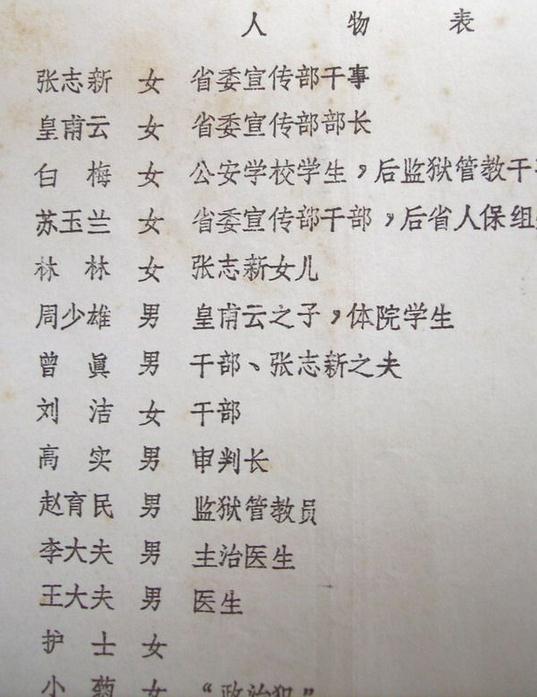 人 物 表
张志新 女 省委宣传部干事
皇甫云 女 省委宣传部部长
白 梅 女 公安学校学生，后监狱管教干
苏玉兰 女 省委宣传部干部，后省人保组
林 林 女 张志新女儿
周少雄 男 皇甫云之子，体院学生
曾 眞 男 干部、张志新之夫
刘 洁 女 干部
高 实 男 审判长
赵育民 男 监狱管教员
李大夫 男 主治医生
王大夫 男 医生
护 士 女
小 菊 女 “政治犯”